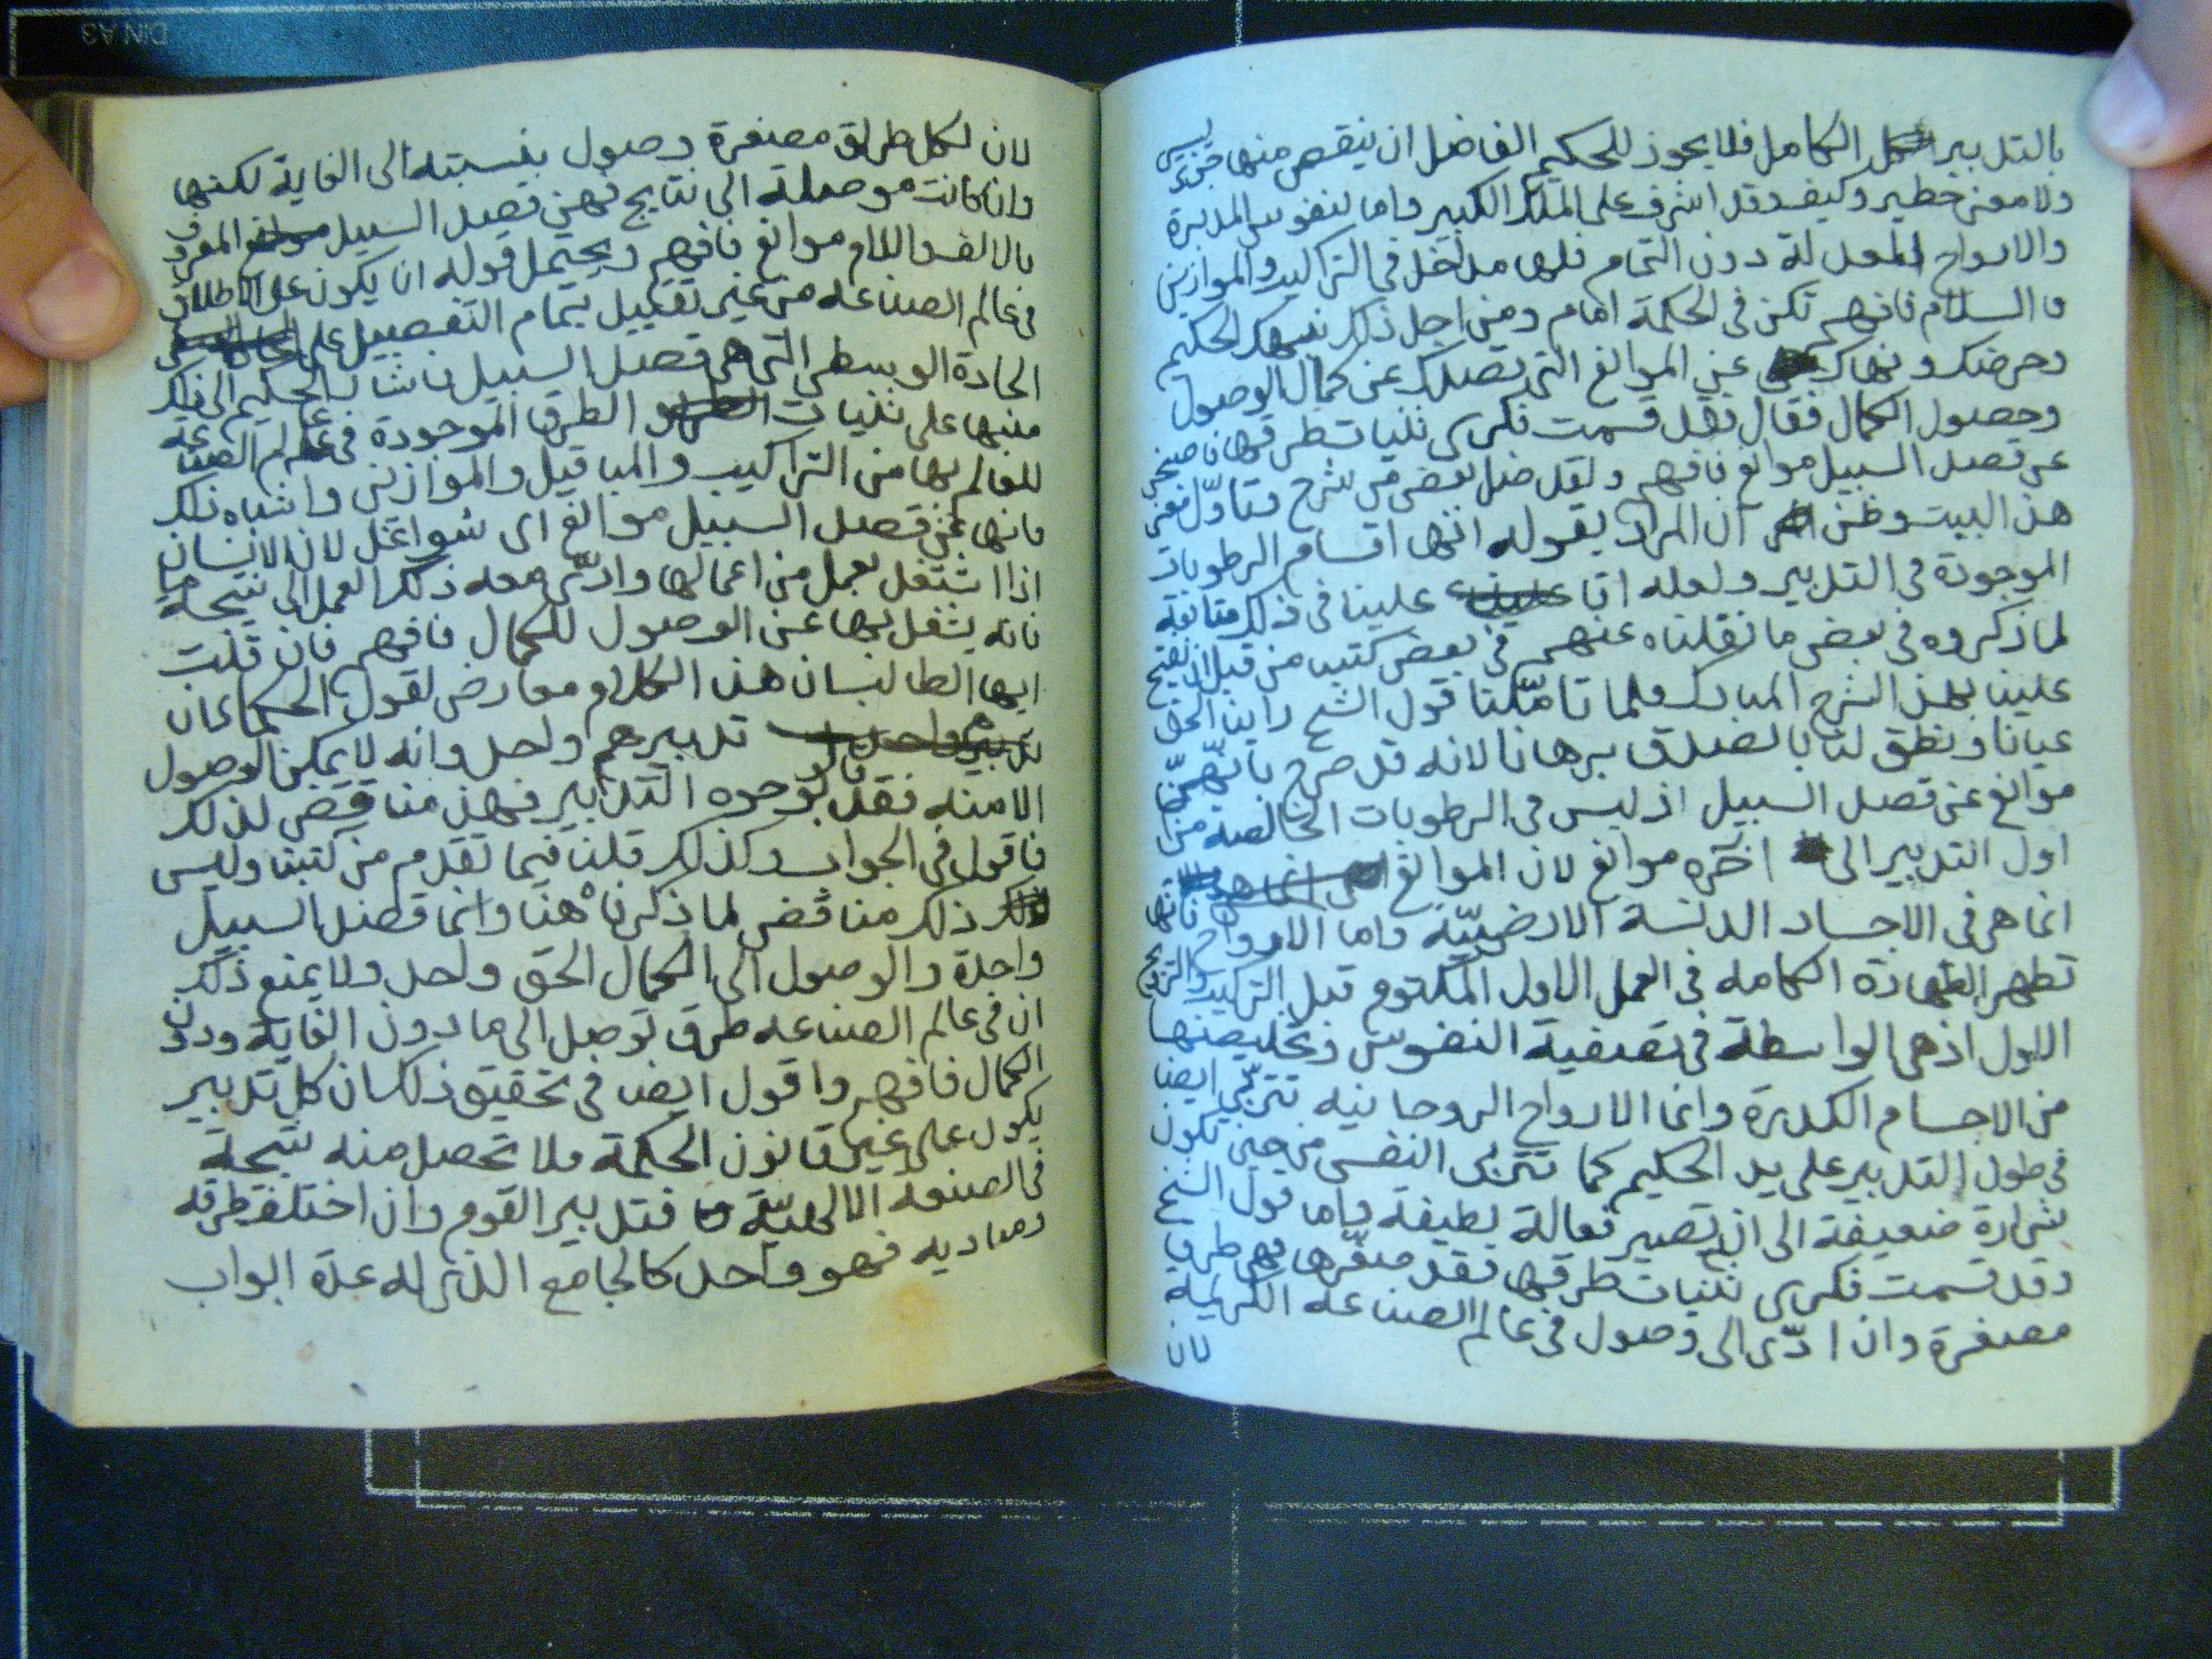 بالتدبير الكامل فلا يجوز للحكيم الفاضل ان ينقص منها جزء يسير
ولا معنى خطير وكيف وقد اشرف على الملك الكبير واما لنفوس المدبرة
والارواح المعدلة دون التمام فلها مدخل في التراكيب والموازين
والسلام فافهم تكن في الحكمة امام ومن اجل ذلك نبهك الحكيم
وحرضك ونهاك عن الموانع التي تصدك عن كمال الوصول
وحصول الكمال فقال فقد قسمت فكرى ثنيات طرقها فاصبحن
عن قصد السبيل موانع فافهم ولقد ضل بعض من شرح وتأول معنى
هذ البيت وظن ان المراد بقوله انها اقسام الرطوبات
الموجودة في التدبير ولعله اتا علينا في ذلك متابعة
لما ذكروه في بعض ما نقلناه عنهم في بعض كتبنا من قبل ان يفتح
علينا بهذ الشرح المبارك فلما تأملنا قول الشيخ راينا الحق
عيانا ونطق لنا بالصدق برهانا لانه قد صرح بانهن
موانع عن قصد السبيل اذ ليس في الرطوبات الخالصة من
اول التدبير الى اخره موانع لان الموانع
انما هي في الاجساد الدنسة الارضية واما الارواح فانها
تطهر الطهارة الكامله في العمل الاول المكتوم قبل التركيب والتزويج
الاول اذ هي الواسطة في تصفية النفوس وتخليصها
من الاجسام الكدرة وانما الارواح الروحانيه تتربى ايضا
في طول التدبير على يد الحكيم كما تتربى النفس من حين تكون
شرارة ضعيفة الى ان تصير فعالة لطيفة واما قول الشيخ
وقد قسمت فكرى ثنيات طرقها فقد صغرها فهي طرق
مصغرة وان ادّى الى وصول في عالم الصناعه الكريمة
لان
لان لكل طريق مصغرة وصول بنسبته الى الغاية لكنها
وان كانت موصلة الى نتايج فهن قصد السبيل المعرف
بالالف واللام موانع فافهم ويحتمل قوله ان يكون على الاطلاق
في عالم الصناعه من غير تقييد بتمام التفصيل على
الجادة الوسطى التي هي قصد السبيل فاشار الحكيم الى ذلك
منبها على ثنيات الطرق الموجودة في عالم الصناعه
للعالم بها من التراكيب والمباقيل والموازين واشباه ذلك
فانها عن قصد السبيل موانع اى شواغل لان الانسان
اذا اشتغل بعمل من اعمالها وادّى معه ذلك العمل الى نتيجة ما
فانه يشغل بها عن الوصول للكمال فافهم فان قلت
ايها الطالب ان هذ الكلام معارض لقول الحكما بان
تدبيرهم واحد وانه لا يمكن الوصول
الا منه فقد قالو بوحدة التدابير فهذ مناقض لذلك
فاقول في الجواب وكذلك قلنا فيما تقدم من كتبنا وليس
ذلك مناقض لما ذكرناه هنا وانما قصد السبيل
واحدة والوصول الى الكمال الحق واحد ولا يمنع ذلك
ان في عالم الصناعه طرق توصل الى ما دون الغاية ودون
الكمال فافهم واقول ايضا في تحقيق ذلك ان كل تدبير
يكون على غير قانون الحكمة فلا تحصل منه نتيجة
في الصنعة الالهيّة فتدبير القوم وان اختلف طرقه
ومباديه فهو واحد كالجامع الذى له عدة ابواب